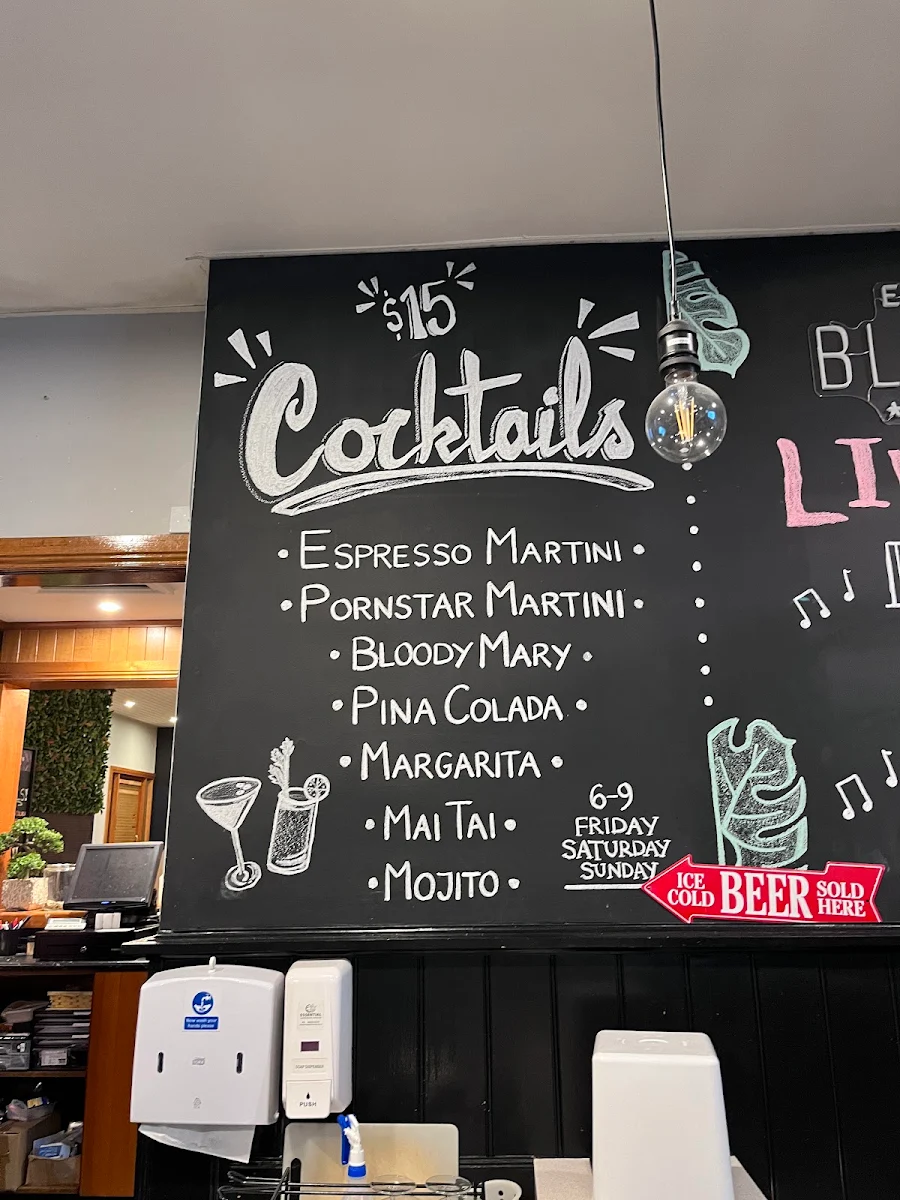 $15
Cocktails
• Espresso Martini •
• Pornstar Martini •
• Bloody Mary •
• Pina Colada •
• Margarita •
• Mai Tai •
• Mojito •
6-9
FRIDAY
SATURDAY
SUNDAY
ICE COLD BEER SOLD HERE
Now wash your
hands please
PUSH